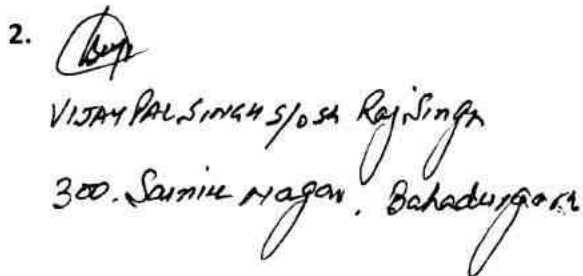 2.
VIJAY PAL SINGH S/o Sh Raj Singh
300. Sainik Nagar, Bahadurgarh